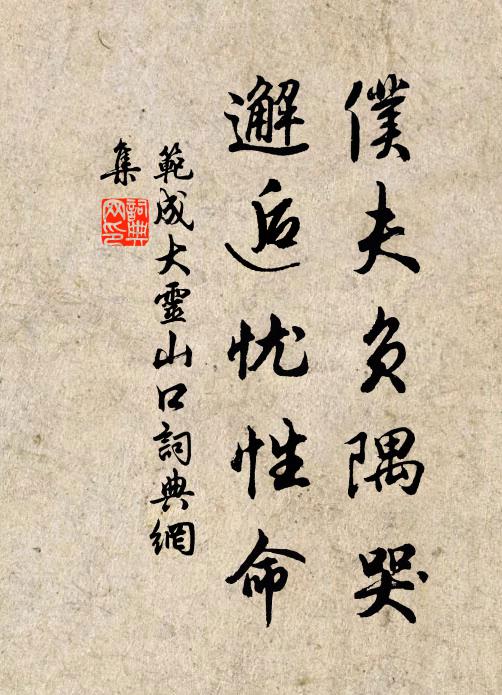 僕夫負隅哭
邂逅忧性命
範成大靈山口詞典網
集
詞典
网印